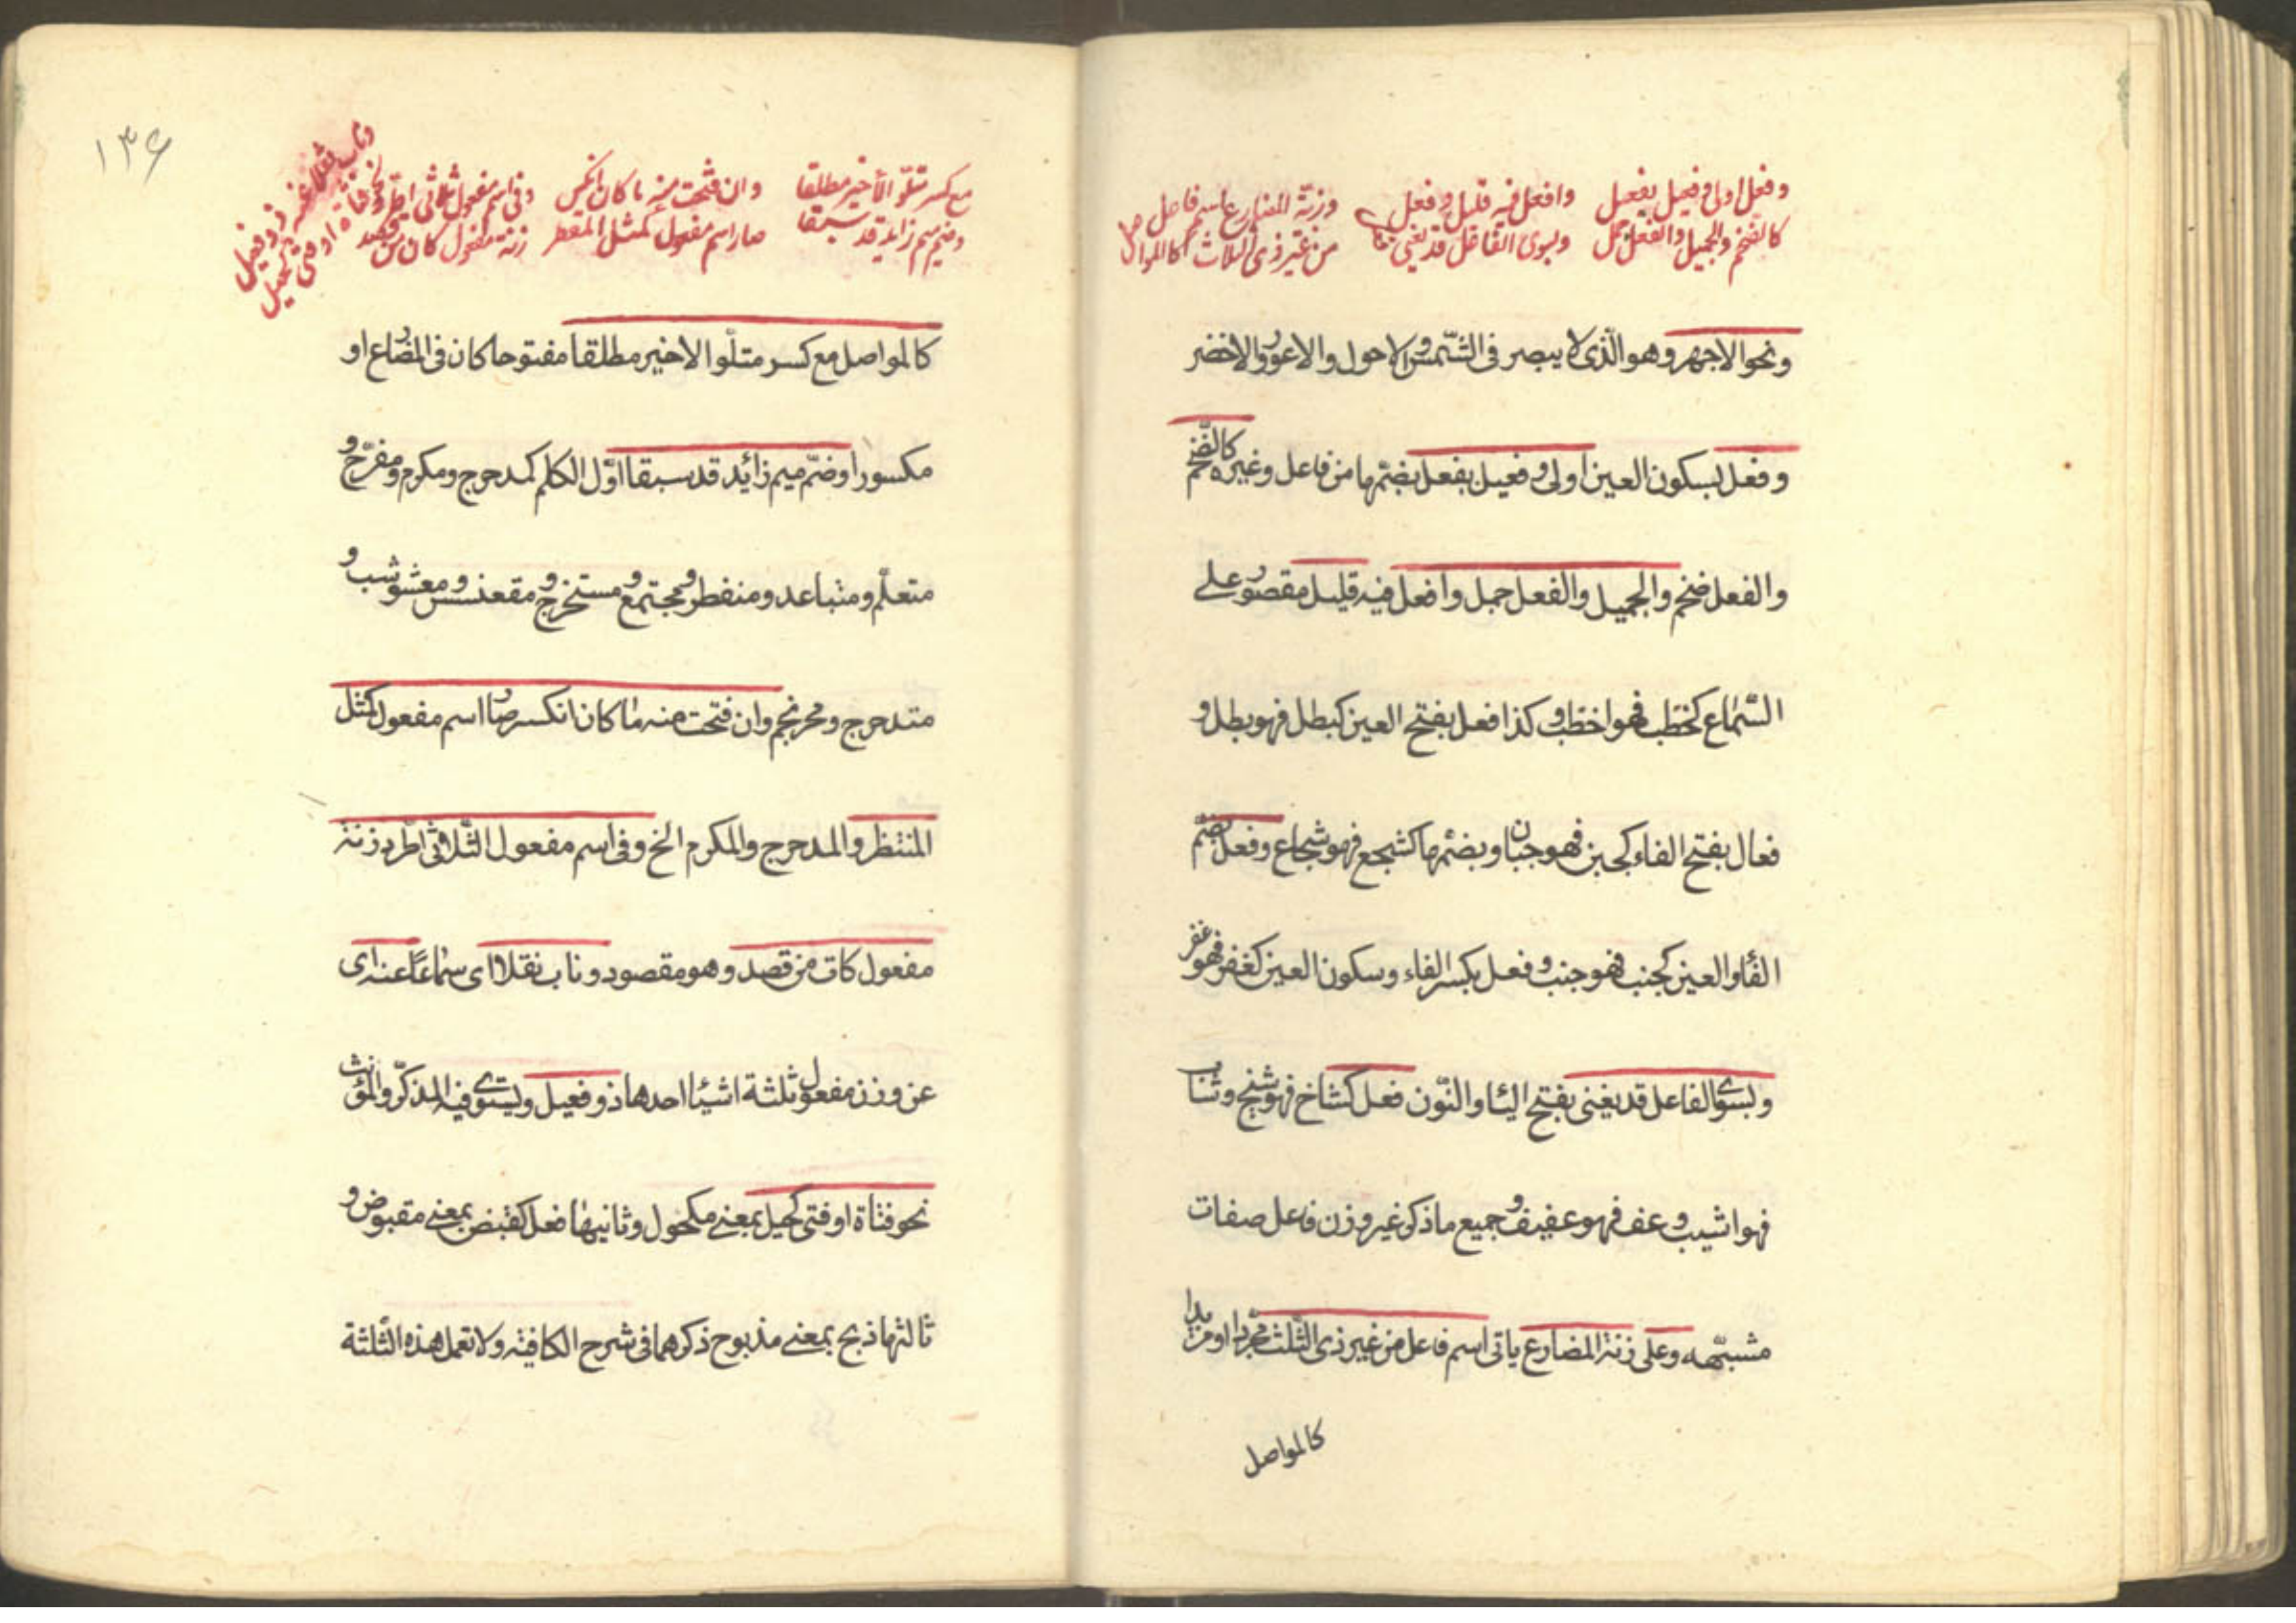 وفعل اولى وفعيل بفعل وافعل فيه قليل وفعل وزنة المضارع اسم فاعل
كالضخم والجميل والفعل جمل وبسوى الفاعل قد يغنى من غير ذى الثلاث كالمواصل
ونحو الاجهر وهو الّذى لا يبصر فى الشّمس والاحول والاعور والاخضر
وفعل بسكون العين اولى وفعيل بفعل بضمّها من فاعل وغيره كالضّخم
والفعل ضخم والجميل والفعل جمل وافعل فيه قليل مقصور على
السّماع كخطب فهو اخطب وكذا فعل بفتح العين كبطل فهو بطل و
فعال بفتح الفاء كجبن فهو جبان وبضمّها كشجع فهو شجاع وفعل بضمّ
الفاء والعين كجنب فهو جنب وفعل بكسر الفاء وسكون العين كغفر فهو غفر
وبسوى الفاعل قد يغنى بفتح الياء والنّون فعل كشاخ فهو شيخ وشاب
فهو اشيب وعف فهو عفيف وجميع ما ذكر غير وزن فاعل صفات
مشبّهه وعلى زنة المضارع ياتى اسم فاعل من غير ذى الثّلث مجرّدا او مزيدا
كالمواصل
١٣۶
مع كسر متلوّ الأخير مطلقا وان فتحت منه ما كان انكسر وفى اسم مفعول الثلاثى اطرد
وضم ميم زايد قد سبقا صار اسم مفعول كمثل المنتظر زنة مفعول كات من قصد
وناب نقلا عنه ذو فعيل
نحو فتاة او فتى كحيل
كالمواصل مع كسر متلّو الاخير مطلقا مفتوحا كان فى المضارع او
مكسورا وضمّ ميم زائد قد سبقا اوّل الكلم كمدحرج ومكرم ومفرّح و
متعلّم ومتباعد ومنفطر ومجتمع ومستخرج ومقعنسس ومعشوشب و
متدحرج ومحرنجم وان فتحت منه ما كان انكسر صار اسم مفعول كمثل
المنتظر والمدحرج والمكرم الخ وفى اسم مفعول الثّلاثى اطّرد زنة
مفعول كات من قصد وهو مقصود وناب نقلا اى سماعًا عنه اى
عن وزن مفعول ثلثة اشياء احدها ذو فعيل ويستوى فيه المذكّر والمؤنث
نحو فتاة او فتى كحيل بمعنى مكحول وثانيها فعل كقبض بمعنى مقبوض و
ثالثها ذبح بمعنى مذبوح ذكرهما فى شرح الكافية ولا تعمل هذه الثّلثة